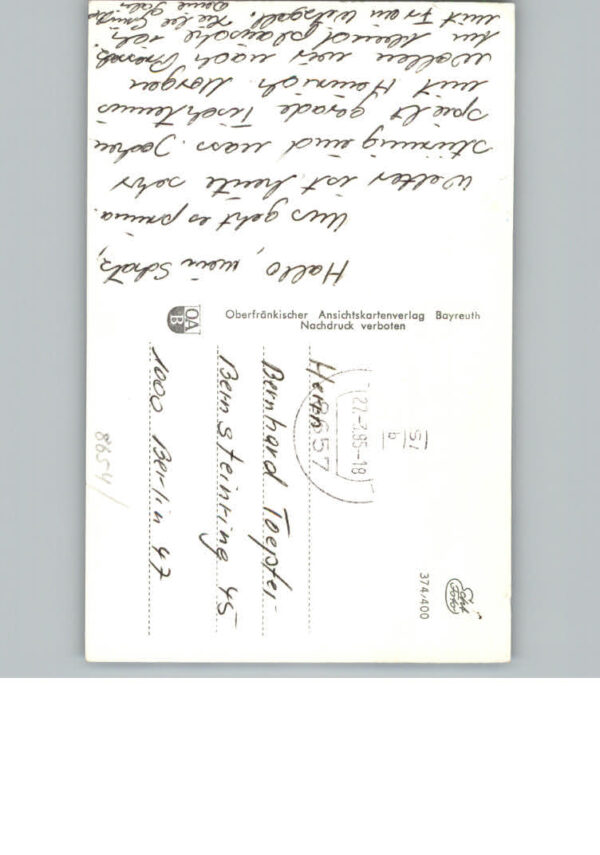 Hallo, mein Schatz,
Uns geht es prima.
Wetter ist heute sehr
stürmig und nass. Jochen
spielt gerade Tischtennis
mit Heinrich. Morgen
wollen wir nach
Am Abend plausche ich
mit Frau
Oberfränkischer Ansichtskartenverlag Bayreuth
Nachdruck verboten
OA
B
Herrn
Bernhard Toepfer
Bernsteinring 45
1000 Berlin 47
8657
27.-3.85-18
b
374/400
8654/